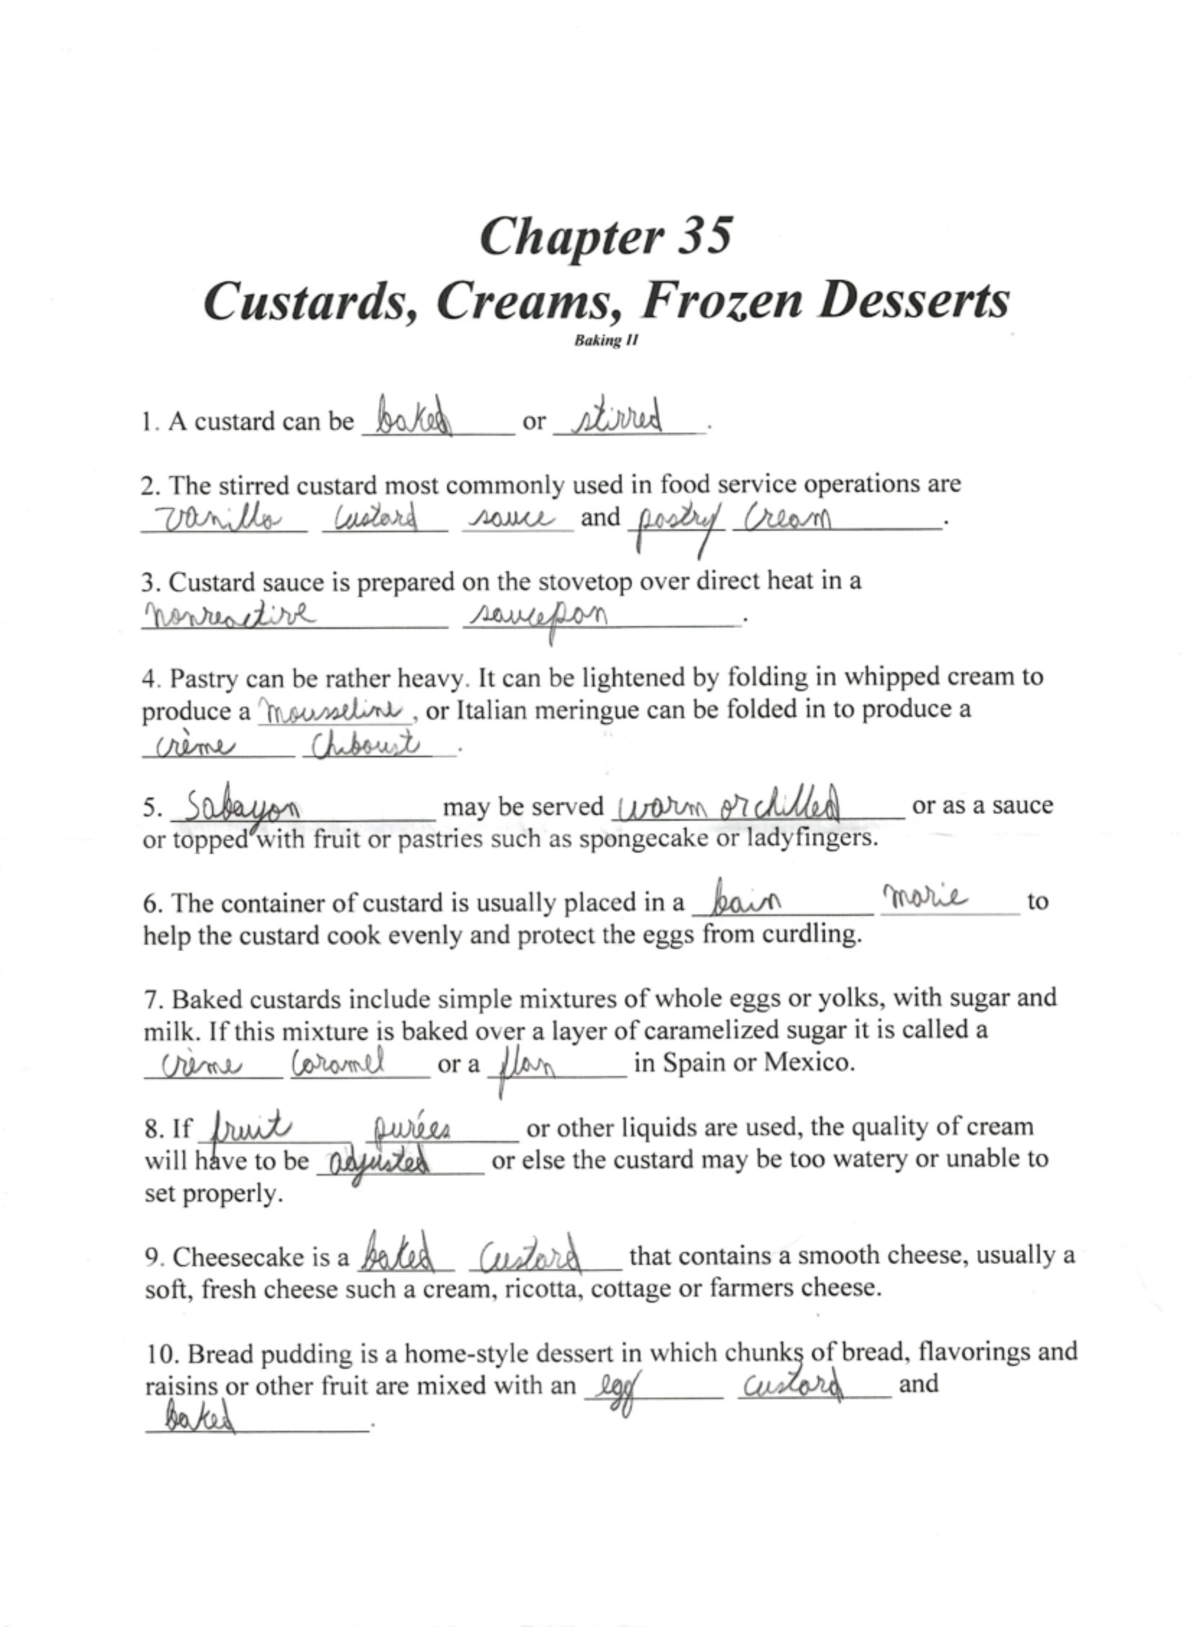 Chapter 35
Custards, Creams, Frozen Desserts
Baking II
1. A custard can be baked or stirred.
2. The stirred custard most commonly used in food service operations are
Vanilla Custard sauce and pastry Cream.
3. Custard sauce is prepared on the stovetop over direct heat in a
nonreactive saucepan.
4. Pastry can be rather heavy. It can be lightened by folding in whipped cream to
produce a mousseline, or Italian meringue can be folded in to produce a
crème Chiboust.
5. Sabayon may be served warm or chilled or as a sauce
or topped with fruit or pastries such as spongecake or ladyfingers.
6. The container of custard is usually placed in a bain marie to
help the custard cook evenly and protect the eggs from curdling.
7. Baked custards include simple mixtures of whole eggs or yolks, with sugar and
milk. If this mixture is baked over a layer of caramelized sugar it is called a
crème Caramel or a flan in Spain or Mexico.
8. If fruit purées or other liquids are used, the quality of cream
will have to be adjusted or else the custard may be too watery or unable to
set properly.
9. Cheesecake is a baked Custard that contains a smooth cheese, usually a
soft, fresh cheese such a cream, ricotta, cottage or farmers cheese.
10. Bread pudding is a home-style dessert in which chunks of bread, flavorings and
raisins or other fruit are mixed with an egg custard and
baked.